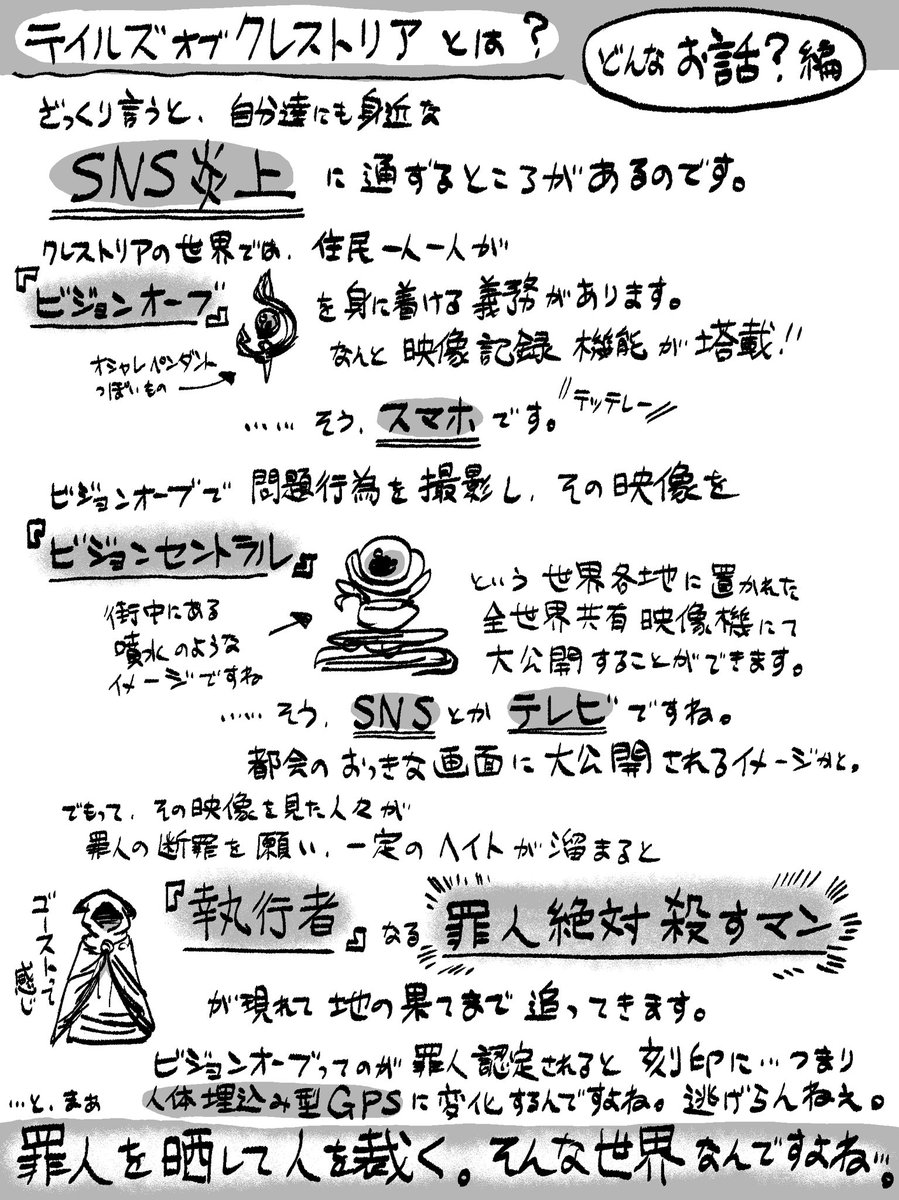 テイルズオブクレストリアとは?
どんなお話?編
ざっくり言うと、自分達にも身近な
SNS炎上に通ずるところがあるのです。
クレストリアの世界では、住民一人一人が
『ビジョンオーブ』を身に着ける義務があります。
なんと映像記録機能が塔載!!
オシャレペンダント
っぽいもの
……そう、スマホです。
テッテレー
ビジョンオーブで問題行為を撮影し、その映像を
『ビジョンセントラル』
という世界各地に置かれた
全世界共有映像機にて
大公開することができます。
街中にある
噴水のような
イメージですね
……そう、SNSとかテレビですね。
都会のおっきな画面に大公開されるイメージかと。
でもって、その映像を見た人々が
罪人の断罪を願い、一定のヘイトが溜まると
『執行者』なる罪人絶対殺すマン
ゴーストって
感じ
が現れて地の果てまで追ってきます。
ビジョンオーブってのが罪人認定されると刻印に…つまり
人体埋込み型GPSに変化するんですよね。逃げらんねぇ。
…と、まぁ
罪人を晒して人を裁く。そんな世界なんですよね…。